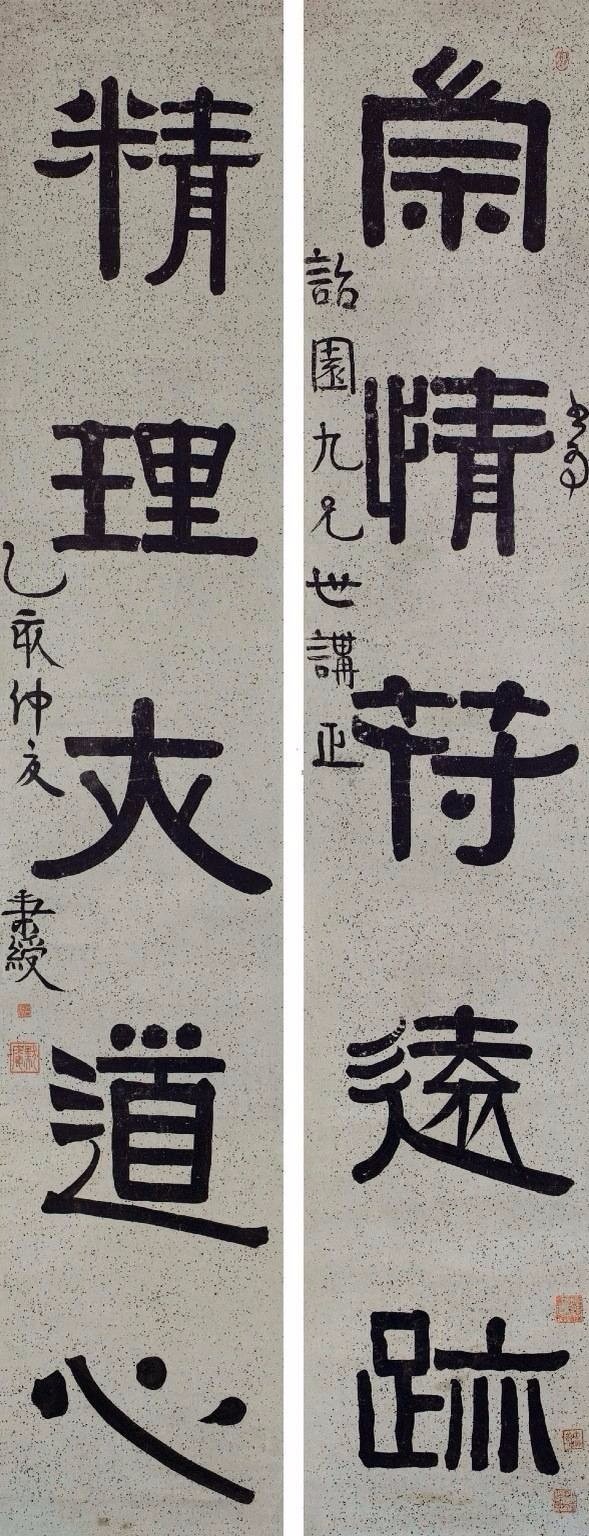 崇情符遠跡
詒園九兄世講正
精理大道心
乙亥仲夏 秉綬